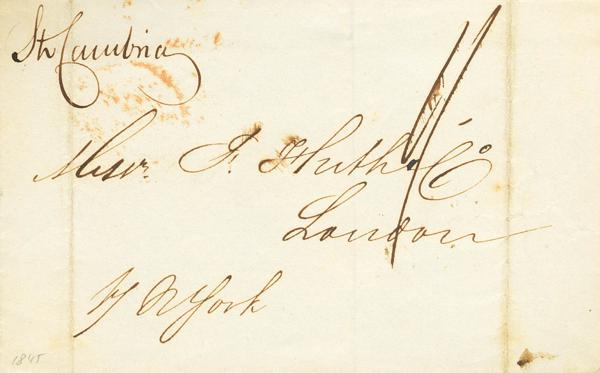 Str Cambria
Messrs F. Huth & Co
London
N York
1845